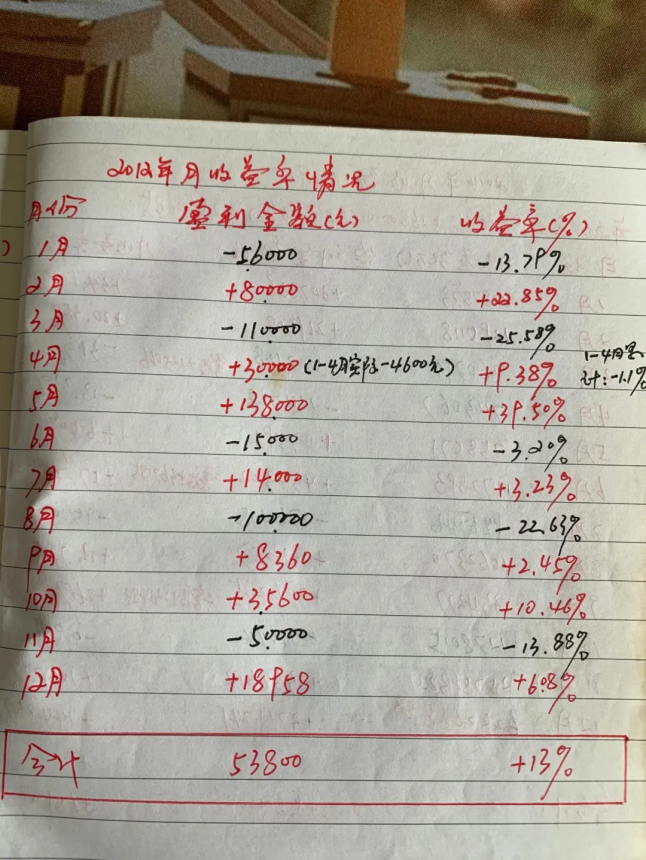 2012年月收益率情况
月份 盈利金额(元) 收益率(%)
1月 -56000 -13.79%
2月 +80000 +22.85%
3月 -110000 -25.58%
4月 +30000(1-4月实际-4600元) +9.38% 1-4月累计:-1.1%
5月 +138000 +39.50%
6月 -15000 -3.20%
7月 +14000 +3.23%
8月 -100000 -22.63%
9月 +8360 +2.45%
10月 +35600 +10.46%
11月 -50000 -13.88%
12月 +18958 +6.08%
合计 53800 +13%